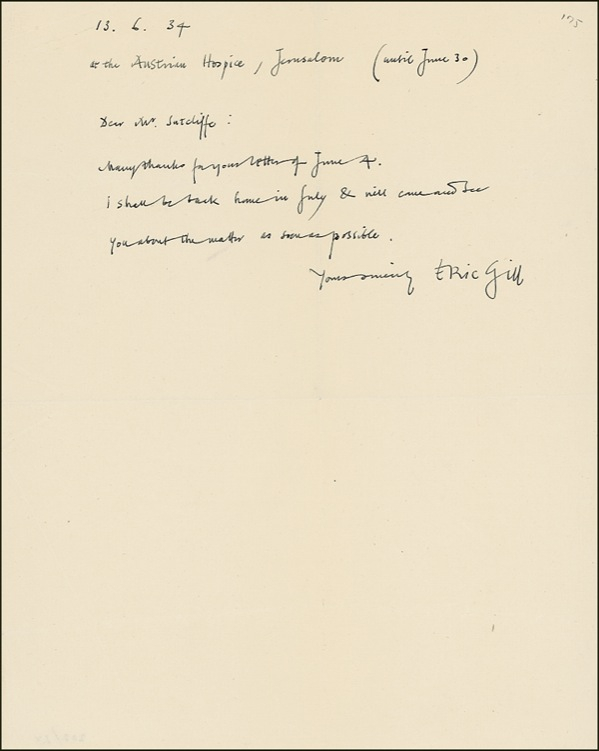 175
13. 6. 34
at the Austrian Hospice, Jerusalem (until June 30)
Dear Mr. Sutcliffe:
Many thanks for your letter of June 4.
I shall be back home in July & will come and see
you about the matter as soon as possible.
Yours sincerely Eric Gill